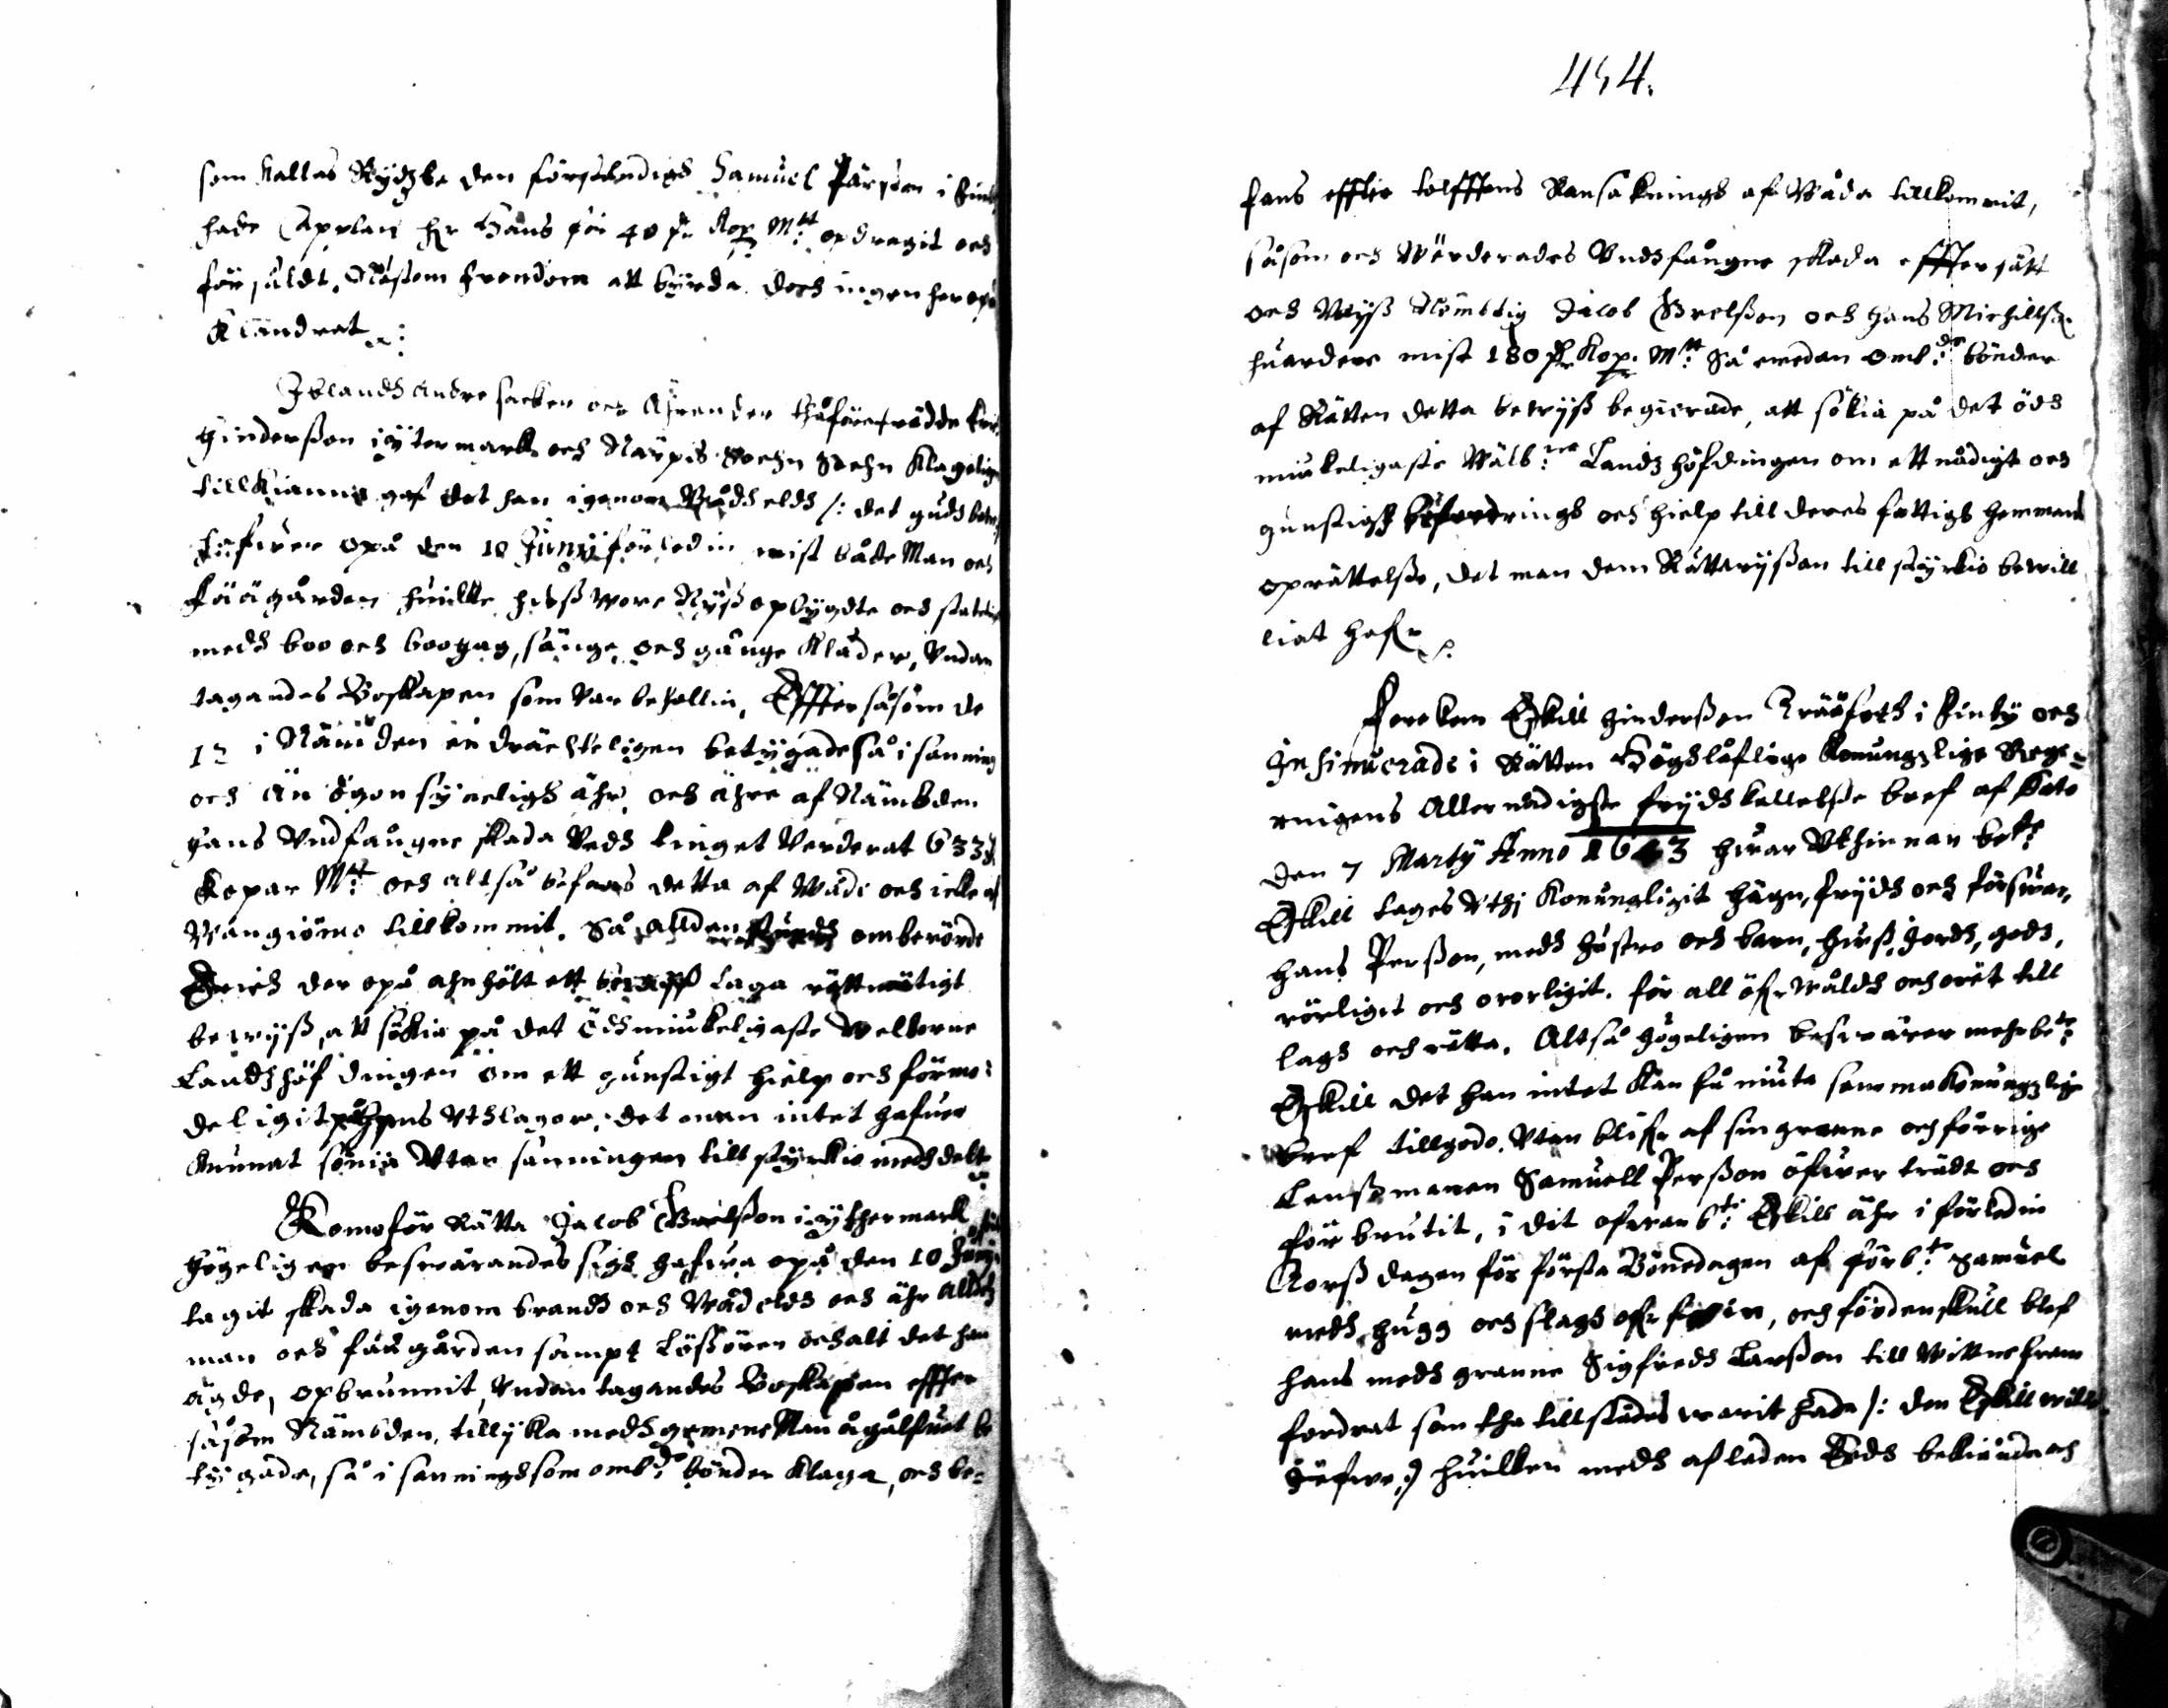 som Kallas Rydzbe den förståndigh Samuel Pärsson i
hade Capplan hr Hans för 40 dr Kop Mtt opdragit och
försåldt. Nästom frendom att byrda. doch ingen her opå
Klandrat
Iblandh andre saeker och Ährender thå förenträdde
Hindersson i ytermark och Närpis Sochn Klagelige
tillkienna gaf det han igenom Vådh eldh /: det gudh
opå den 10 Junij förledin mist både Man och
fäägården huilke huss wore Nyss opbygdte och
medh boo och boohag, sänge, och gånge Kläder, Vndan
tagandes Boskapen som Var behollin, Effter såsom de
12 i Nämbden endrächteligen betygade så i sanning
och Än ögonsyneligh ähr, och ähre af Nämbden
hans Vndfångne skada Vedh tinget Verderat 633
Kopar Mtt och altså befans detta af Wåde och icke af
Vangiömo tillkommit. Så alldenstundh omberörde
Erich der opå ahnhölt ett laga rättmätigt
bewyss, att sökia på det Ödhmiukeligaste Welborne
Landzhöfdingen om ett gunstigt hielp och förme
deligit på hans Vthlagor, det man intet hafuer
Kunnat Vtan sanningen till styrkio meddelt
Kom för Rätta Jacob Brelsson i ythermark
högeligen beswärandes sigh hafwa opå den 10
tagit skada igenom brandh och Wåd eldh och ähr
man och fäägården sampt lössören och alt det han
ägde, opbrunnit, Vndantagandes Boskapen effter
såsom Nämbden, tillyka medh gemene Man
tygade, så i sanningh som ombde bönder Klaga, och be=
454.
fans effter tolfftens Ransakningh af Våda tillkommit,
såsom och Wärderades Vndfångne skada effter sätt
och Wyss Nembtlig Jacob Brelsson och Hans Michillss
huardere mist 180 dr Kop. Mtt Så emedan ombde bönder
af Rätten detta bewyss begierade, att sökia på det ödh
miukeligaste Wälbne Landzhöfdingen om ett nådigt och
gunstigh befordringh och hielp till deres fattigh hemmans
oprättelsse, det man dem Rättwyssan till styrkio bewill
liat hafr
Fore kom Eskill Hindersson Träskfoth i Finby och
Insinuerade i Rätten Högloflige Konungzlige Rege=
ringens Allernådigste frydh kallelsse bref af Dato
den 7 Marty Anno 1643 huar Vthinnan bete
Eskill tages Vthj Konungligit hägn, frydh och försuar,
hans Persson, medh hustro och barn, huss, Jordh, godz,
rörligit och ororligit. för all öfrwåldh och orät till
lagh och rätta. Altså högeligen beswärer mehrbete
Eskill det han intet Kan få niuta samma Konungzlige
bref tillgodo. Vtan blifr af sin granne och förrige
Lenssmanen Samuell Persson öfwer trädt och
för brutit, i dit ofwanbte Eskill ähr i förledin
Korss dagen för första Bönedagen af förbte Samuel
medh hugg och slagh, och fördenskull blef
hans medh granne Sigfredh Larsson till Wittne fram
fordrat som tha tillstädes warit hade /: den Eskill wille
Jäfwe :/ huilken medh aflagden Eedh bekiende och